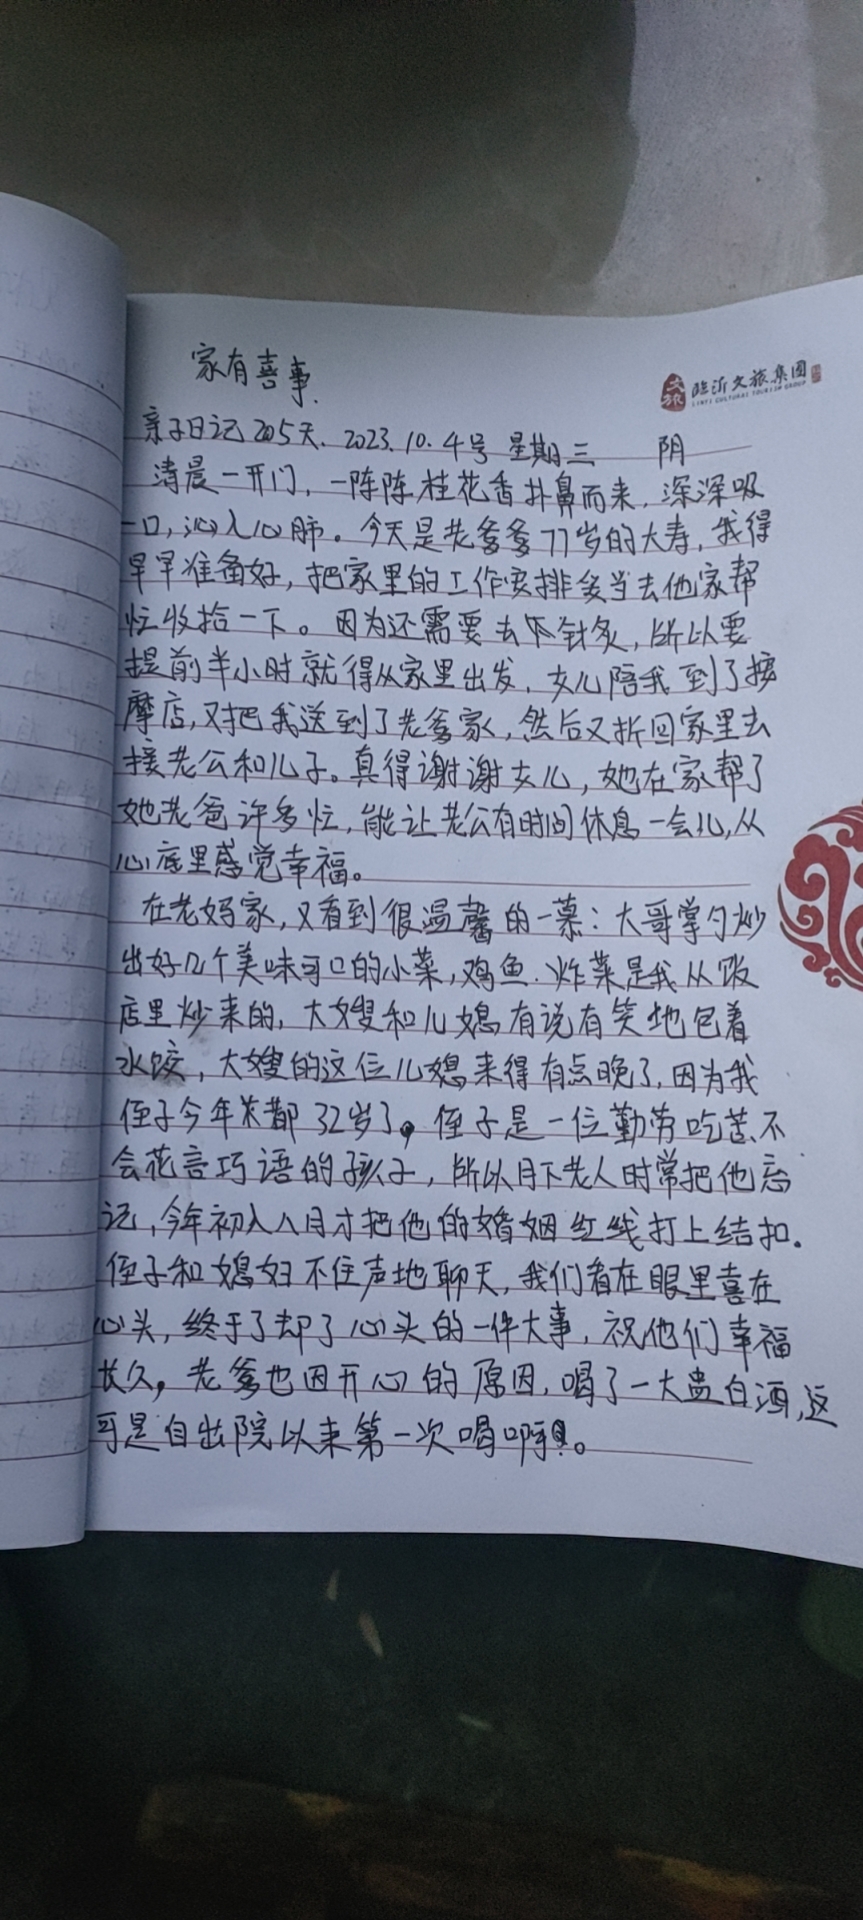 家有喜事.
文旅 临沂文旅集团
LINYI CULTURAL TOURISM GROUP
亲子日记205天. 2023.10.4号 星期三 阴
清晨一开门,一阵阵桂花香扑鼻而来,深深吸
一口,沁入心肺。今天是老爹爹77岁的大寿,我得
早早准备好,把家里的工作安排妥当去他家帮
忙收拾一下。因为还需要去 针灸,所以要
提前半小时就得从家里出发,女儿陪我到了按
摩店,又把我送到了老爹家,然后又折回家里去
接老公和儿子。真得谢谢女儿,她在家帮了
她老爸许多忙,能让老公有时间休息一会儿,从
心底里感觉幸福。
在老妈家,又看到很温馨的一慕:大哥掌勺炒
出好几个美味可口的小菜,鸡鱼.炸菜是我从饭
店里炒来的,大嫂和儿媳有说有笑地包着
水饺,大嫂的这位儿媳来得有点晚了,因为我
侄子今年 都32岁了,侄子是一位勤劳吃苦、不
会花言巧语的孩子,所以月下老人时常把他忘
记,今年初入八月才把他的婚姻红线打上结扣.
侄子和媳妇不住声地聊天,我们看在眼里喜在
心头,终于了却了心头的一件大事,祝他们幸福
长久,老爹也因开心的原因,喝了一大盅白酒,这
可是自出院以来第一次喝啊!。